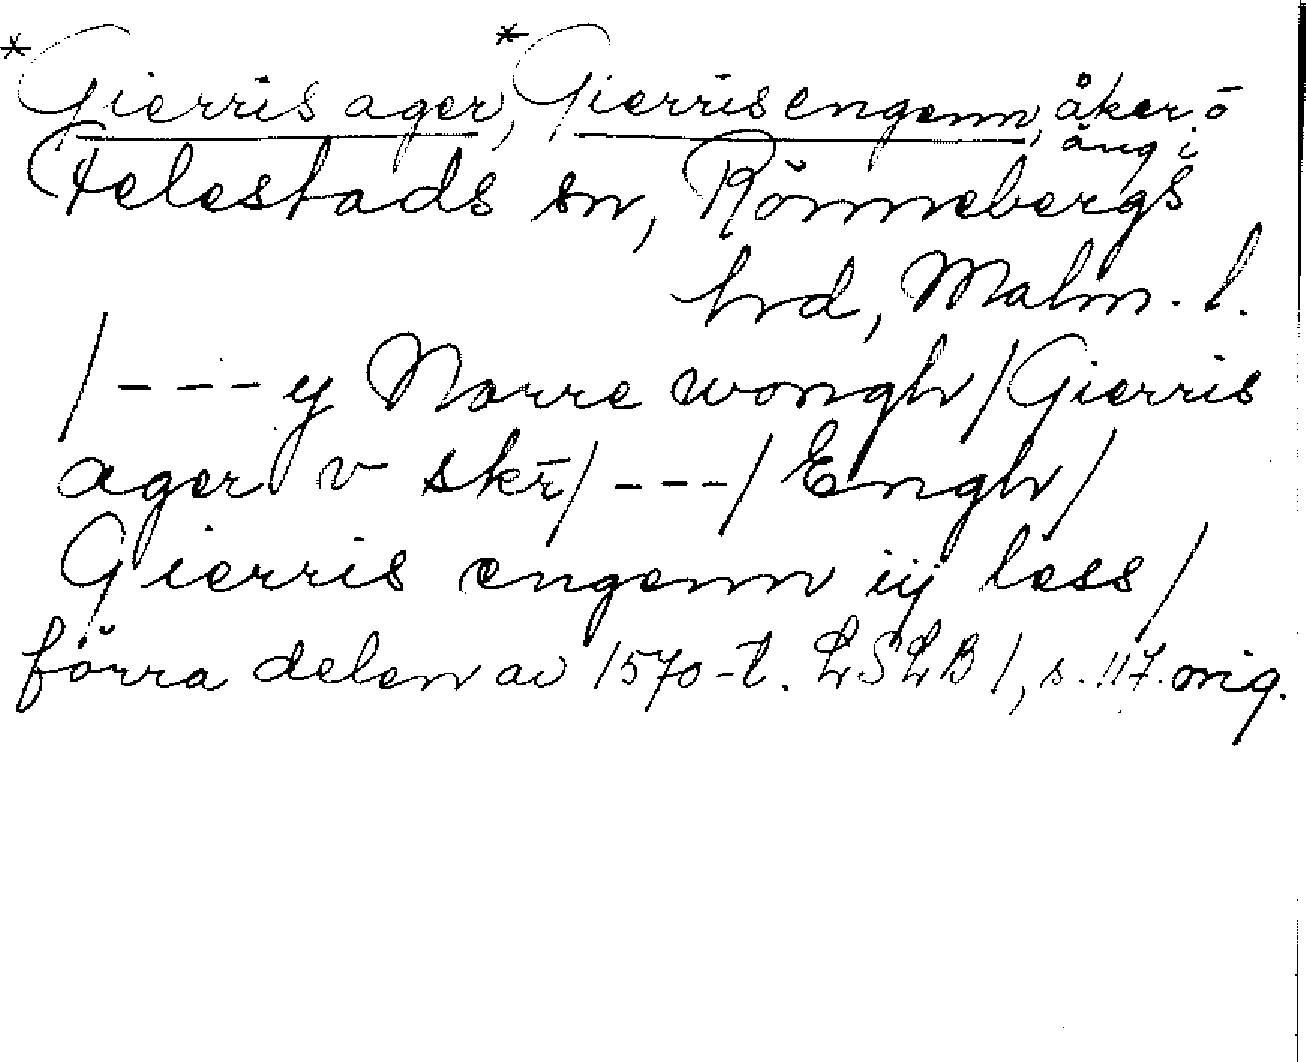 *Gierris ager, *Gierris engenn, åker o
äng i
Felestads sn, Rönnebergs
hrd, Malm. l.
/---y Norre wongh/Gierris
ager v skr/---/Engh/
Gierris engenn iij less/
förra delen av 1570-t. LSLB 1, s. 117. orig.